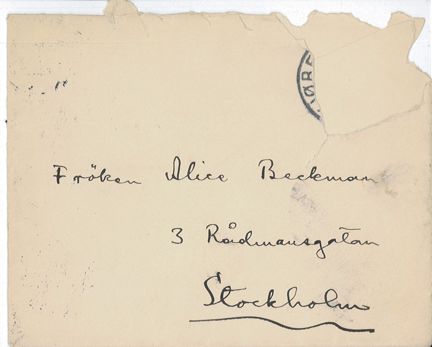 Fröken Alice Beckman
3 Rådmansgatan
Stockholm